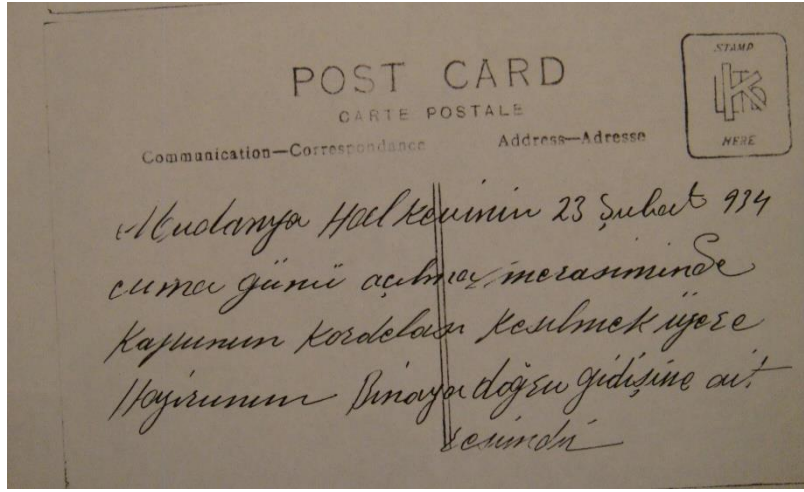 POST CARD
CARTE POSTALE
Communication—Correspondance
Address—Adresse
STAMP
HERE
Mudanya Halkevinin 23 Şubat 934
cuma günü açılma merasiminde
Kapunun Kordelası Kesilmek üzere
Binaya doğru gidişine ait
resimdir